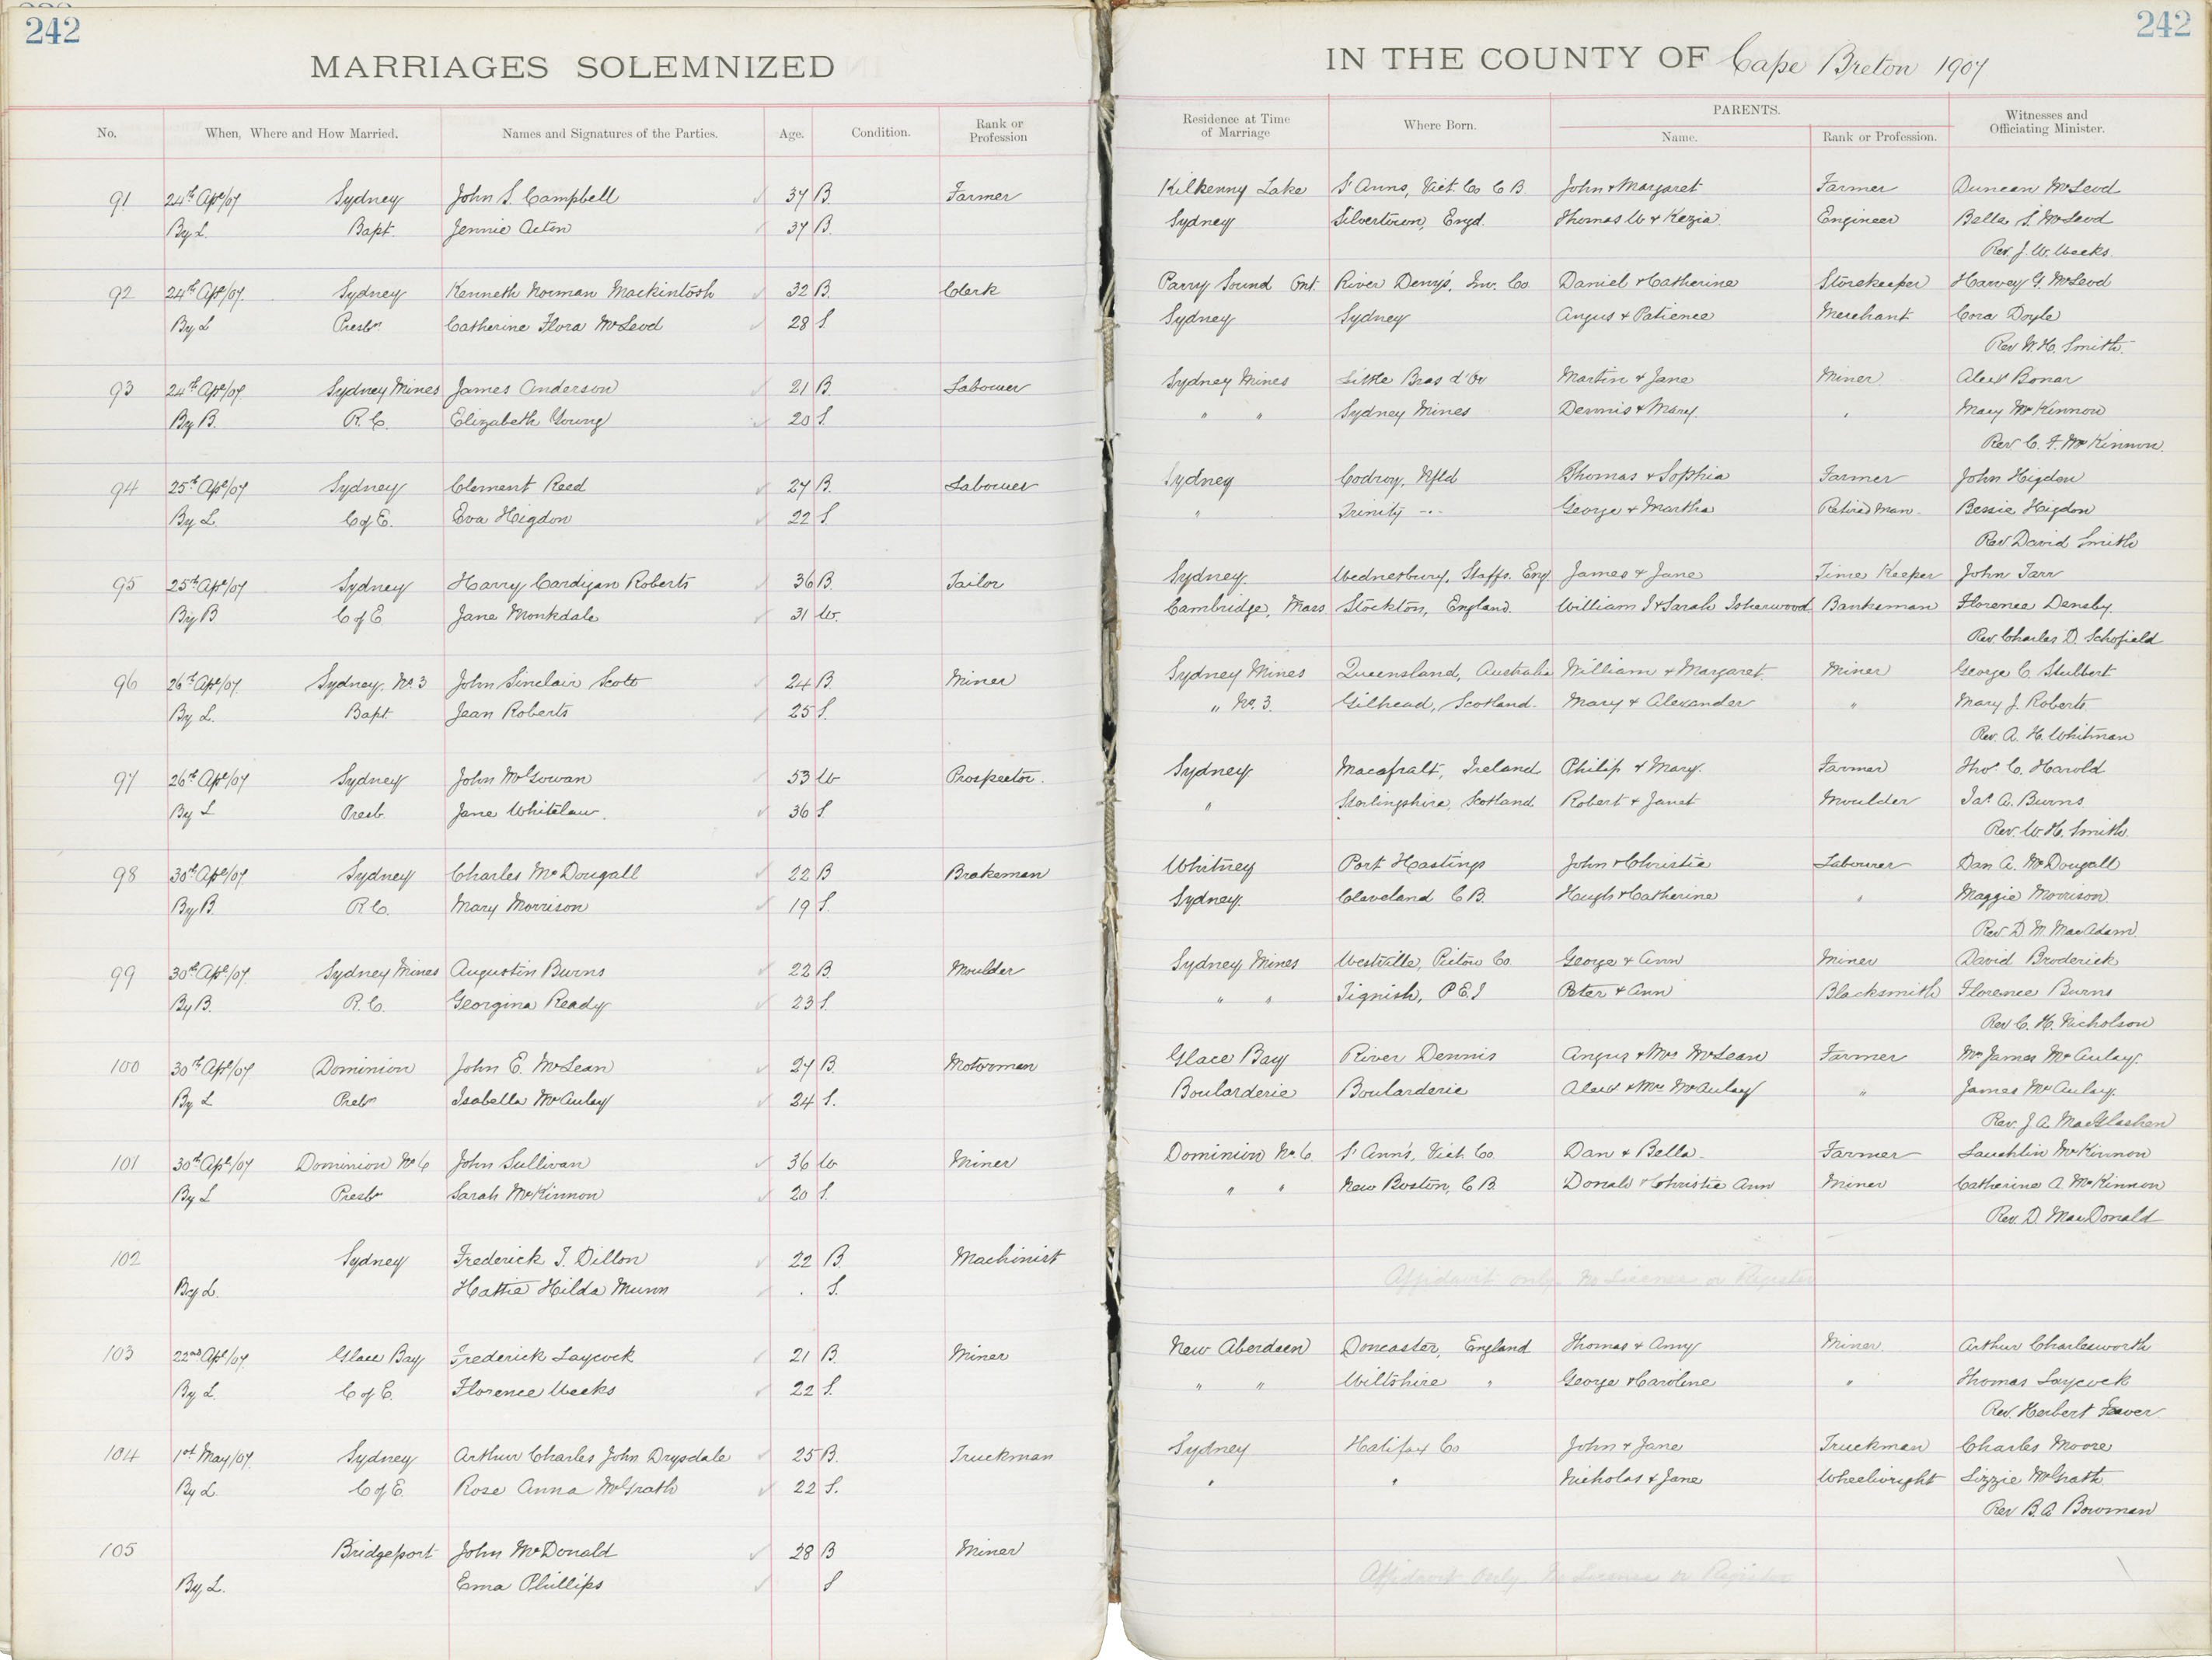 242
242
MARRIAGES SOLEMNIZED IN THE COUNTY OF Cape Breton 1907
No. When, Where and How Married. Names and Signatures of the Parties. Age. Condition. Rank or Profession Residence at Time of Marriage Where Born. PARENTS. Name. Rank or Profession. Witnesses and Officiating Minister.
91 24th Apl/07 Sydney John S. Campbell 37 B. Farmer Kilkenny Lake St Anns, Vict. Co C B. John & Margaret Farmer Duncan McLeod
By L. Bapt. Jennie Acton 37 B. Sydney Silvertown, Engd. Thomas W & Kezia. Engineer Bella S. McLeod
Rev. J. W. Weeks.
92 24th Apl/07. Sydney Kenneth Norman Mackintosh 32 B. Clerk Parry Sound Ont. River Denys, Inv. Co. Daniel & Catherine Storekeeper Harvey G. McLeod
By L Presbn. Catherine Flora McLeod 28 S Sydney Sydney Angus & Patience Merchant. Cora Doyle
Rev W. H. Smith.
93 24th Apl/07. Sydney Mines James Anderson 21 B. Labourer Sydney Mines Little Bras d'Or Martin & Jane Miner. Alexr Bonar
By B. R. C. Elizabeth Young 20 S. " " Sydney Mines Dennis & Mary. " Mary McKinnon
Rev C. F. McKinnon.
94 25th Apl/07 Sydney Clement Reed 27 B. Labourer Sydney Codroy, Nfld Thomas & Sophia Farmer John Higdon
By L. C of E. Eva Higdon 22 S. " Trinity -"- George & Martha Retired Man. Bessie Higdon
Rev David Smith
95 25th Apl/07 Sydney Harry Cardigan Roberts 36 B. Tailor Sydney Wednesbury, Staffs. Eng. James & Jane Time Keeper John Tarr
By B C of E Jane Monkdale 31 W. Cambridge, Mass Stockton, England. William I & Sarah Isherwood Banksman Florence Densby.
Rev. Charles D. Schofield
96 26th Apl/07. Sydney, No 3 John Sinclair Scott 24 B. Miner Sydney Mines Queensland, Australia William & Margaret. Miner George C. Stubbert
By L. Bapt Jean Roberts 25 S. " No. 3. Gilhead, Scotland. Mary & Alexander " Mary J. Roberts.
Rev. A. H. Whitman
97 26th Apl/07. Sydney John McGowan 53 W Prospector. Sydney Ireland Philip & Mary. Farmer Thos C. Harold
By L Presb. Jane Whitelaw. 36 S. " Starlingshire, Scotland Robert & Janet Moulder Jas A. Burns.
Rev. W. H. Smith.
98 30th Apl/07. Sydney Charles McDougall 22 B Brakeman Whitney Port Hastings John & Christie Labourer Dan A. McDougall
By B. R. C. Mary Morrison 19 S. Sydney. Cleveland C B. Hugh & Catherine " Maggie Morrison.
Rev D. M. MacAdam.
99 30th Apl/07. Sydney Mines Augustin Burns 22 B. Moulder Sydney Mines Westville, Pictou Co. George & Ann Miner David Broderick
By B. R. C. Georgina Ready 23 S. " " Tignish, P E. I Peter & Ann Blacksmith Florence Burns
Rev C. H. Nicholson
100 30th Apl/07 Dominion John E. McLean 27 B. Motorman Glace Bay River Dennis Angus & Mrs McLean Farmer Mrs James McAulay.
By L Presbn Isabella McAulay 24 S. Boularderie Boularderie Alexr & Mrs McAulay " James McAulay.
Rev. J. A. MacGlashen
101 30th Apl/07 Dominion No 6 John Sullivan 36 W Miner Dominion No. 6. St Ann's, Vict. Co. Dan & Bella. Farmer Lauchlin McKinnon
By L Presbn Sarah McKinnon 20 S. " " New Boston, C B. Donald & Christie Ann Miner Catherine A. McKinnon
Rev. D. MacDonald
102 Sydney Frederick T. Dillon 22 B. Machinist
By L. Hattie Hilda Munn . S. Affidavit only. No License or Register
103 22nd Apl/07. Glace Bay Frederick Laycock 21 B. Miner New Aberdeen Doncaster, England Thomas & Anny Miner. Arthur Charlesworth
By L C of E. Florence Weeks 22 S. " " Wiltshire " George & Caroline " Thomas Laycock
Rev. Herbert Feaver
104 1st May/07. Sydney Arthur Charles John Drysdale 25 B. Truckman Sydney Halifax Co John & Jane Truckman Charles Moore
By L. C of E. Rose Anna McGrath 22 S. " " Nicholas & Jane Wheelwright Lizzie McGrath
Rev B. A Bowman
105 Bridgeport John McDonald 28 B Miner
By L. Ema Phillips S Affidavit only. No License or Register